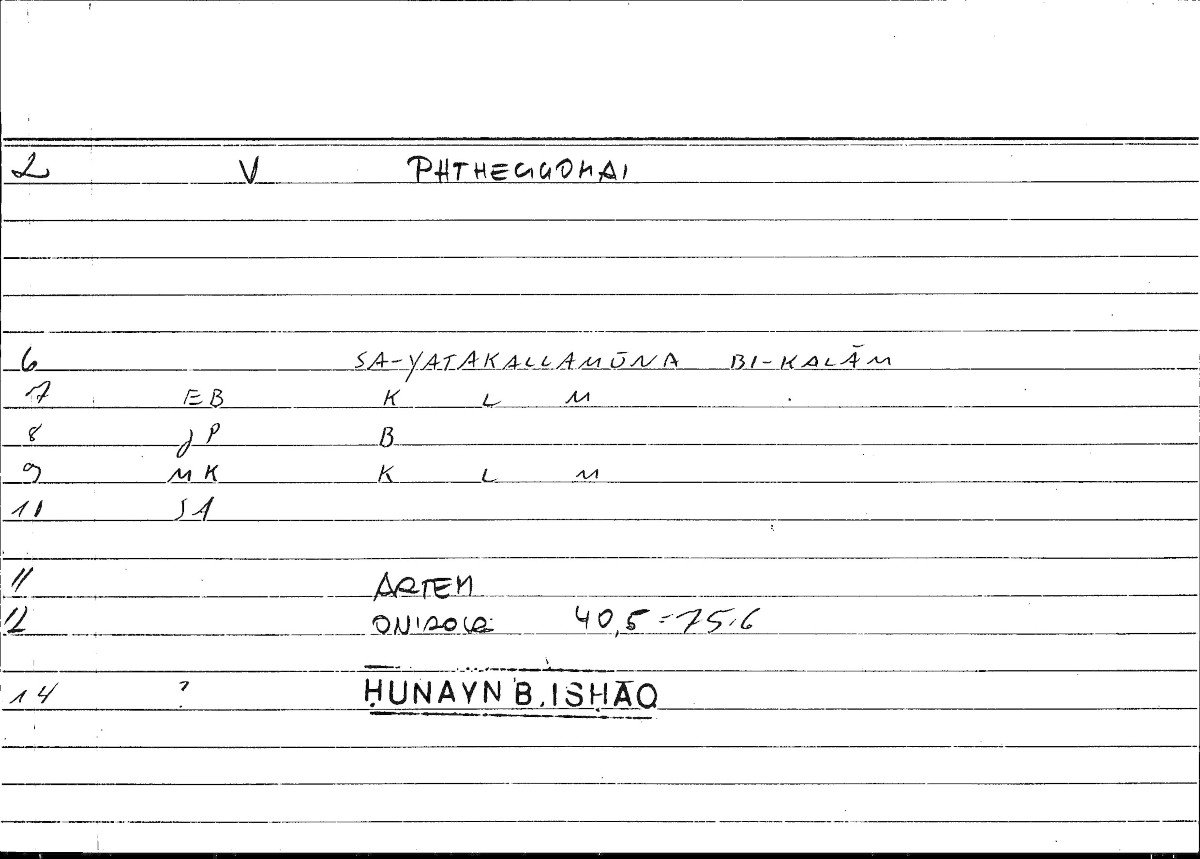 2 V PHTHEGGOMAI
6 SA-YATAKALLAMŪNA BI-KALĀM
7 EB K L M
8 JP B
9 MK K L M
10 SA
11 ARTEM
12 ONIROCR 40,5 = 75.6
14 ? ḤUNAYN B. ISḤĀQ